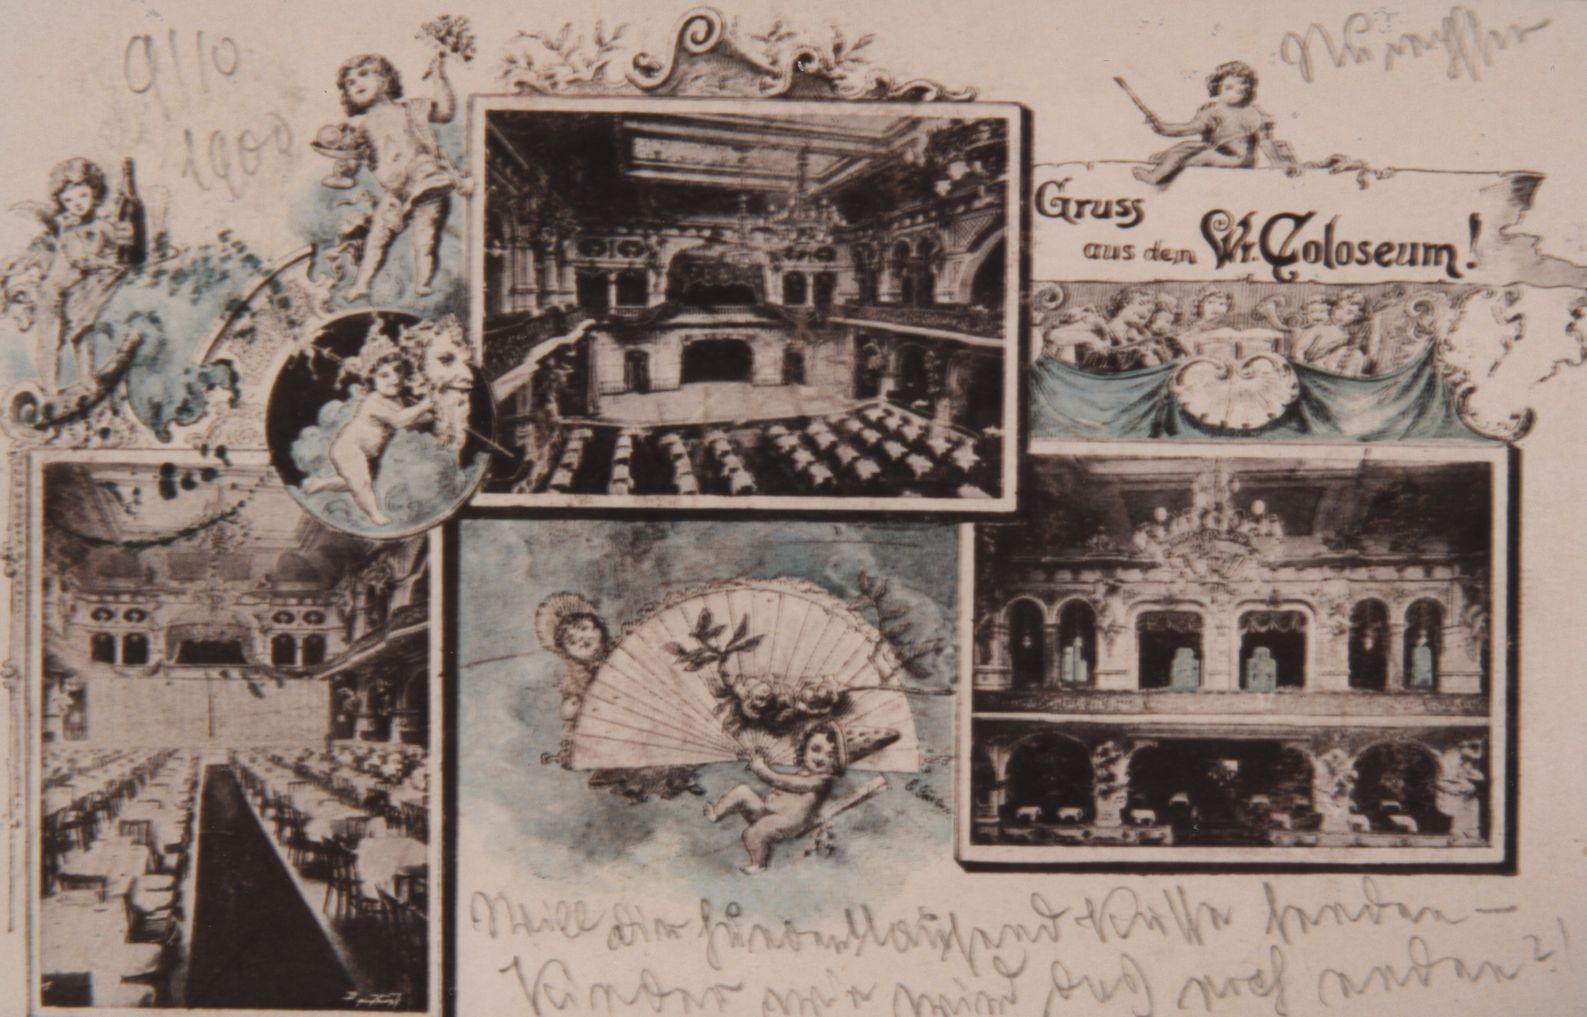 9/10
1900
Gruss
aus dem Wr. Coloseum!
Will dir hunderttausend Küsse senden –
Kinder wie wird das noch enden?!